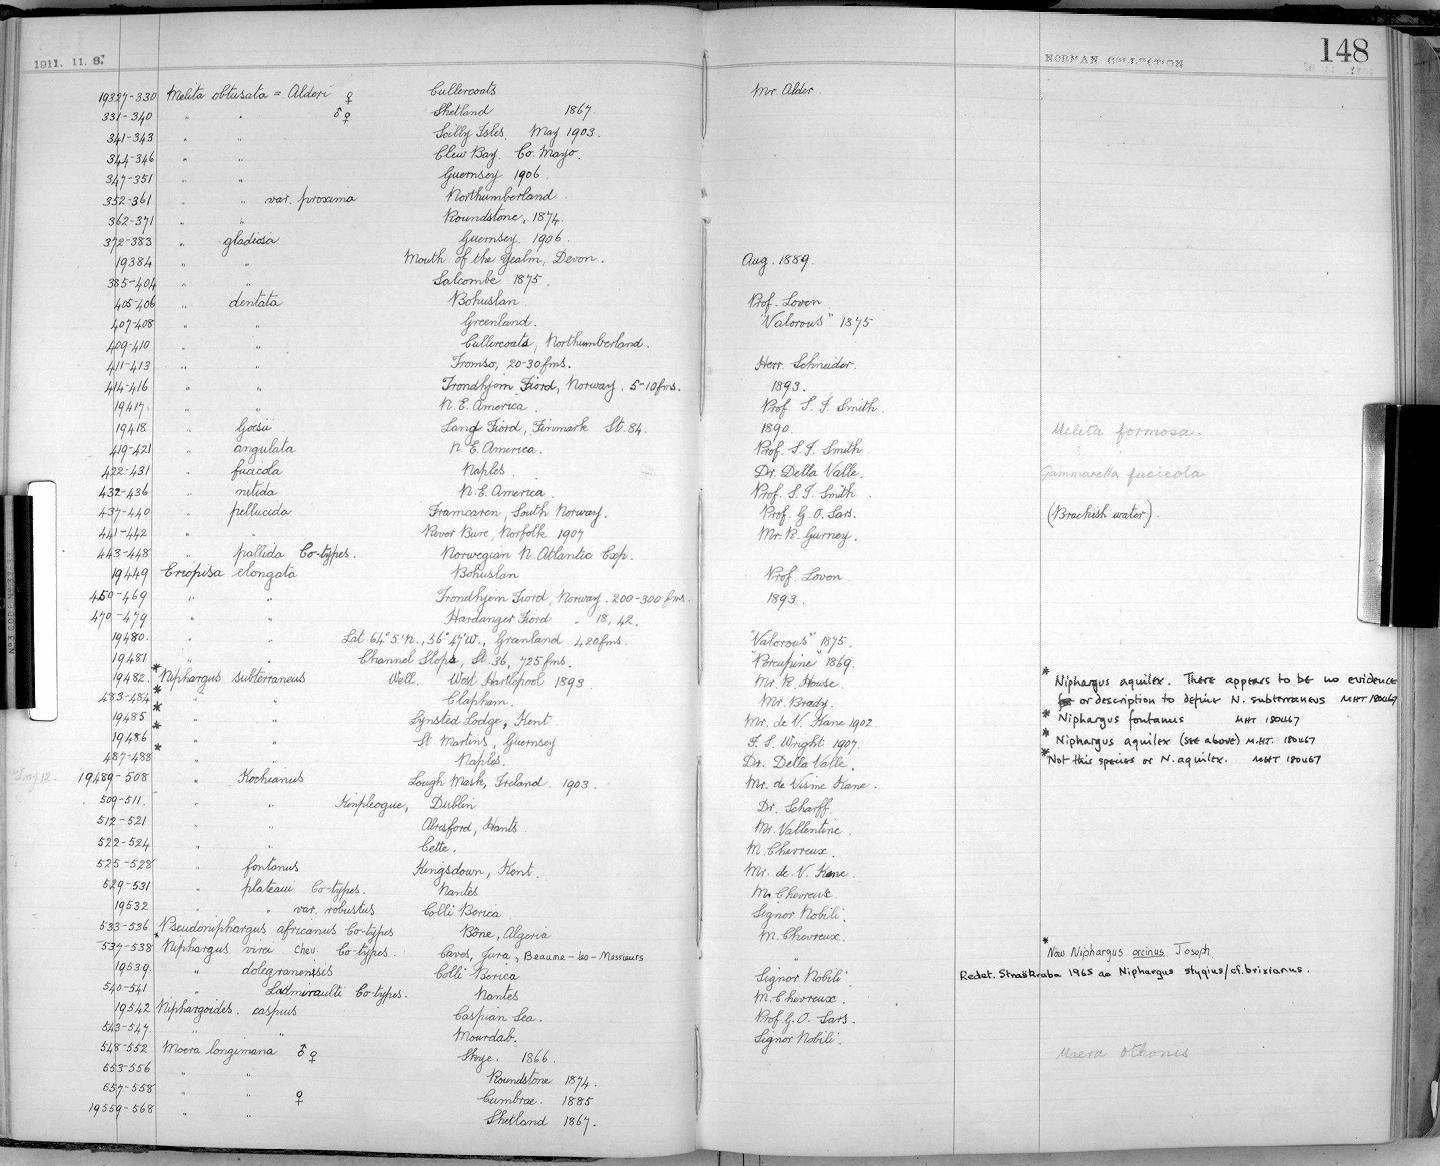 1911. 11. 8. NORMAN COLLECTION 148
19327-330 Melita obtusata = Alderi ♀ Cullercoats Mr. Alder.
331-340 " " ♂♀ Shetland 1867.
341-343 " " Scilly Isles. May 1903.
344-346 " " Clew Bay. Co. Mayo.
347-351 " " Guernsey 1906.
352-361 " " var. proxima Northumberland
362-371 " " Roundstone, 1874.
372-383 " gladiosa Guernsey. 1906.
19384 " " Mouth of the Yealm, Devon. Aug. 1889.
385-404 " " Salcombe 1875.
405-406 " dentata Bohuslan. Prof. Loven
407-408 " " Greenland. "Valorous" 1875
409-410 " " Cullercoats, Northumberland.
411-413 " " Tromso, 20-30 fms. Herr. Schneider.
414-416 " " Trondhjem Fiord, Norway. 5-10 fms. 1893.
19417 " " N.E. America. Prof. S. I. Smith.
19418 " Goesii Lang Fiord, Finmark St. 84. 1890. Meleta formosa.
419-421 " angulata N.E. America. Prof. S. I. Smith
422-431 " fucicola Naples. Dr. Della Valle. Gammarella fucicola
432-436 " nitida N.E. America. Prof. S. I. Smith
437-440 " pellucida Framcaren, South Norway. Prof. G. O. Sars. (Brackish water).
441-442 " " River Bure, Norfolk 1907 Mr. R. Gurney.
443-448 " pallida Co-types. Norwegian N. Atlantic Exp.
19449 Eriopisa elongata Bohuslan Prof. Loven
450-469 " " Trondhjem Fiord, Norway. 200-300 fms. 1893
470-479 " " Hardanger Fiord " 18, 42.
19480. " " Lat 64° 5' N., 56° 47' W., Greenland 420 fms. "Valorous" 1875.
19481 " " Channel Slope, St. 36, 725 fms. "Porcupine" 1869.
19482. * Niphargus subterraneus Well. West Hartlepool 1893. Mr. R. House. * Niphargus aquilex. There appears to be no evidence
483-484 * " " Clapham. Mr. Brady. or description to define N. subterraneus MHT 180467
19485 * " " Lynsted Lodge, Kent Mr. de V. Kane 1902 * Niphargus fontanus MHT 180467
19486 * " " St. Martins, Guernsey F. S. Wright 1907. * Niphargus aquilex (see above) M.H.T. 180467
487-488 * " " Naples. Dr. Della Valle. * Not this species or N. aquilex. MHT 180467
19489-508 " Kochianus Lough Mask, Ireland. 1903. Mr. de Visme Kane.
509-511. " " Kinpleogue, Dublin Dr. Scharff.
512-521 " " Alresford, Hants. Mr. Vallentine.
522-524 " " Cette. M. Chevreux.
525-528 " fontanus Kingsdown, Kent. Mr. de. V. Kane.
529-531 " plateaui Co-types. Nantes M. Chevreux.
19532 " " var. robustus Colli Berica Signor Nobili.
533-536 Pseudoniphargus africanus Co-types Bône, Algeria M. Chevreux.
537-538 * Niphargus virei Chev. Co-types. Caves, Jura, Beaume-les-Messieurs " * Now Niphargus orcinus Joseph
19539. " dolegranensis Colli Berica Signor Nobili Redet. Straškraba 1965 as Niphargus stygius/cf. brixianus.
540-541 " Ladmiraulti Co-types. Nantes M. Chevreux.
19542 Niphargoides. caspius Caspian Sea. Prof. G. O. Sars.
543-547 " " Mourdab. Signor Nobili.
548-552 Moera longimana ♂♀ Skye. 1866. Maera othonis
553-556 " " Roundstone 1874.
557-558 " " ♀ Cumbrae. 1885
19559-568 " " Shetland 1867.